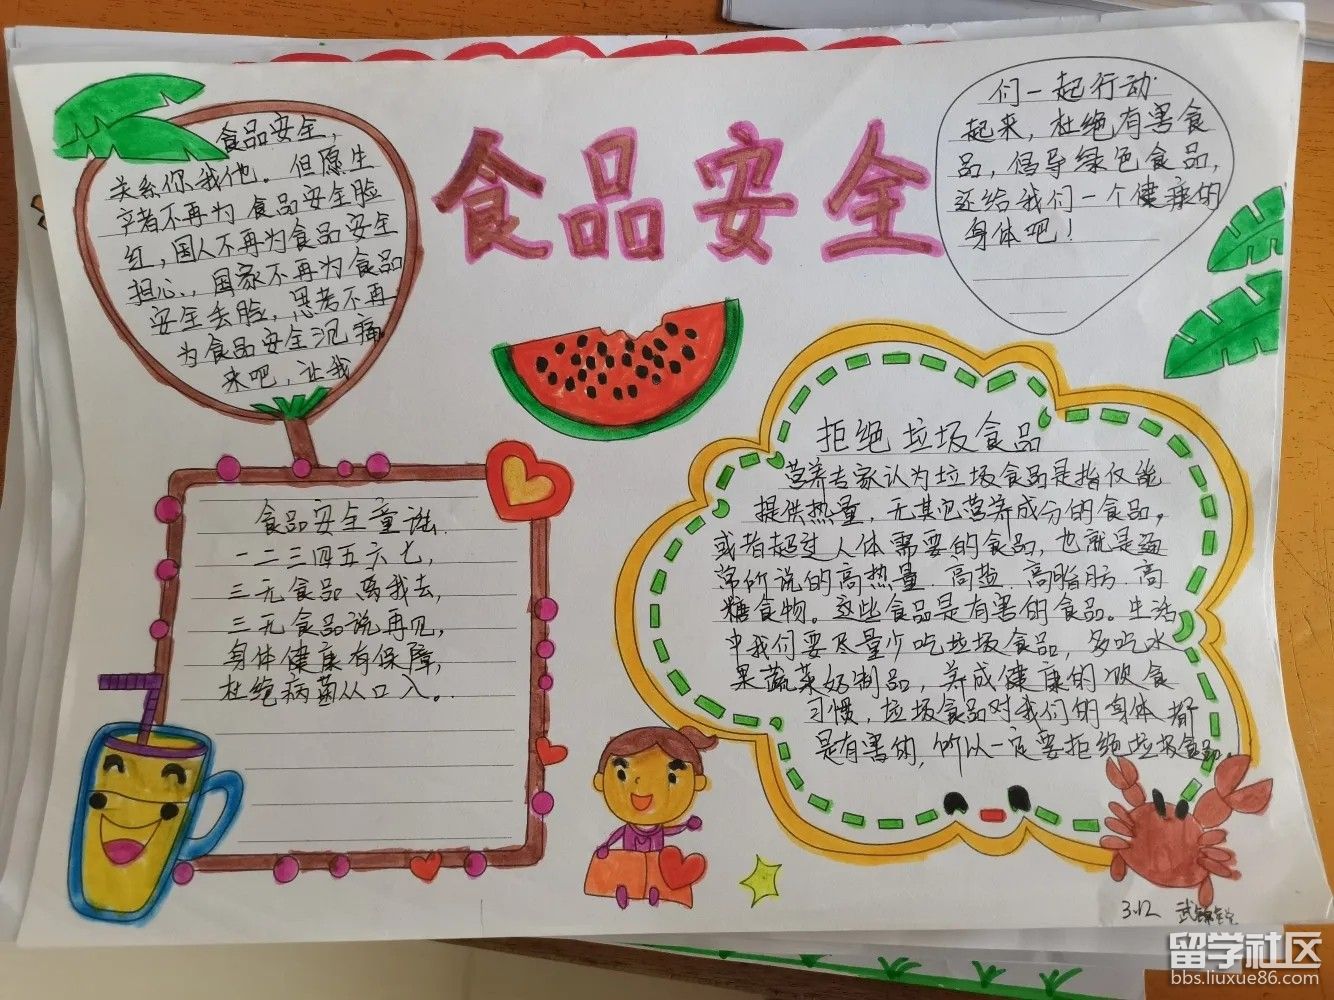 食品安全
食品安全,
关系你我他。但愿生
产者不再为食品安全脸
红,国人不再为食品安全
担心,国家不再为食品
安全丢脸,思考不再
为食品安全沉痛。
来吧,让我
们一起行动
起来,杜绝有害食
品,倡导绿色食品,
还给我们一个健康的
身体吧!
食品安全童谣
一二三四五六七,
三无食品离我去,
三无食品说再见,
身体健康有保障,
杜绝病菌从口入。
拒绝垃圾食品
营养专家认为垃圾食品是指仅能
提供热量,无其它营养成分的食品,
或者超过人体需要的食品,也就是通
常所说的高热量、高盐、高脂肪、高
糖食物。这些食品是有害的食品。生活
中我们要尽量少吃垃圾食品,多吃水
果蔬菜奶制品,养成健康的饮食
习惯,垃圾食品对我们的身体都
是有害的,所以一定要拒绝垃圾食品。
3.12 武
留学社区
bbs.liuxue86.com